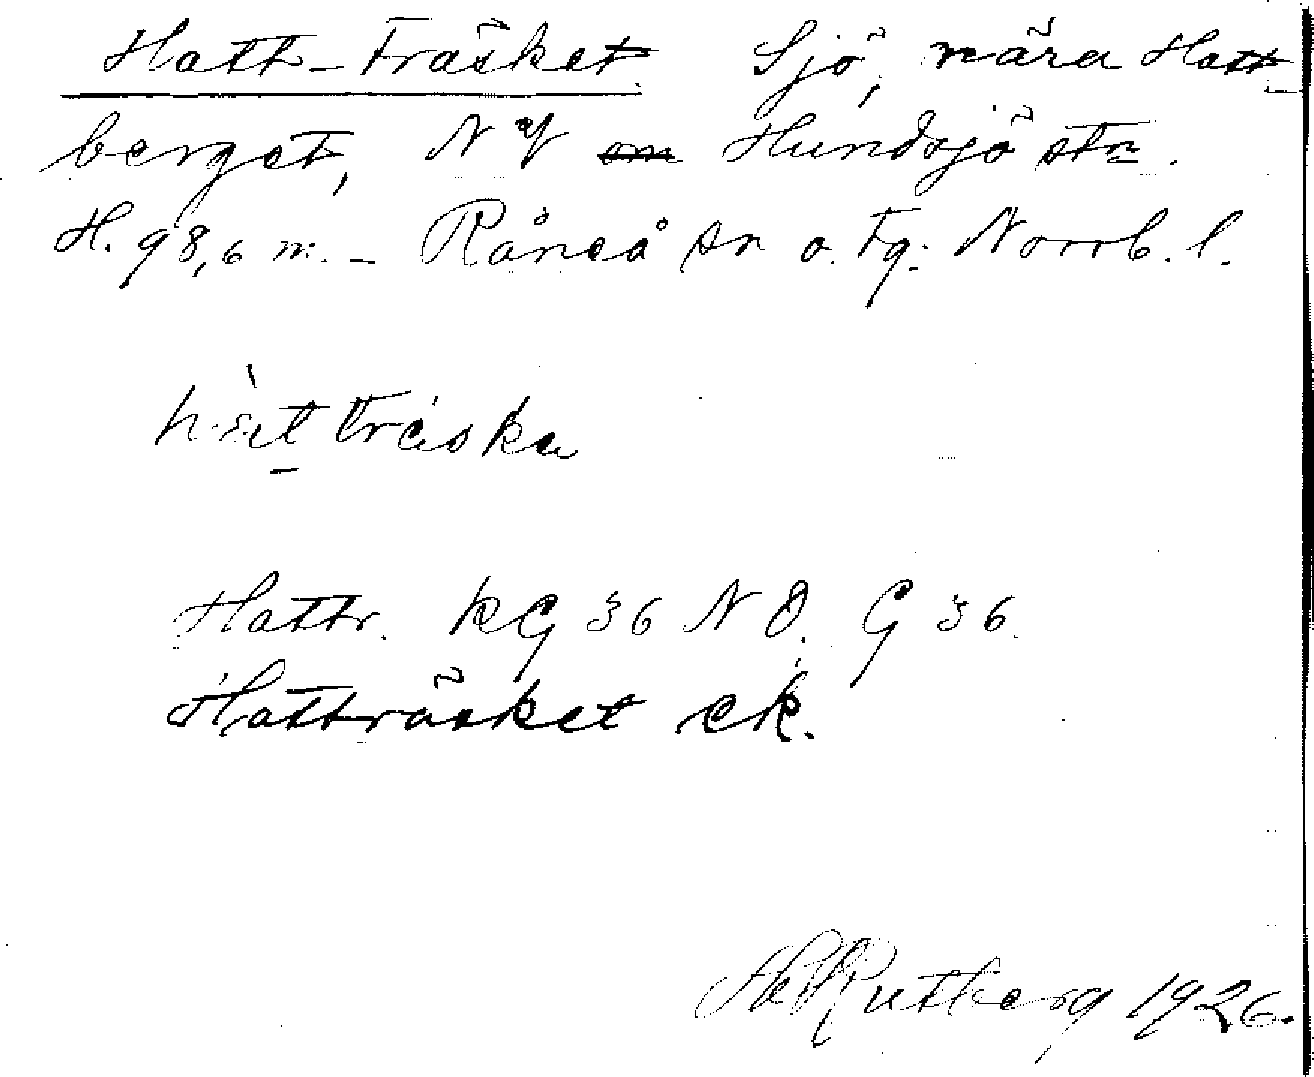 Hatt-Träsket Sjö, nära Hatt-
berget, NV om Hundsjö stn.
H. 98,6 m. - Råneå sn o. Tg. Norrb. l.
träska
Hattr. KG 36 NO. G 36.
Hatträsket ek.
Rutberg 1926.